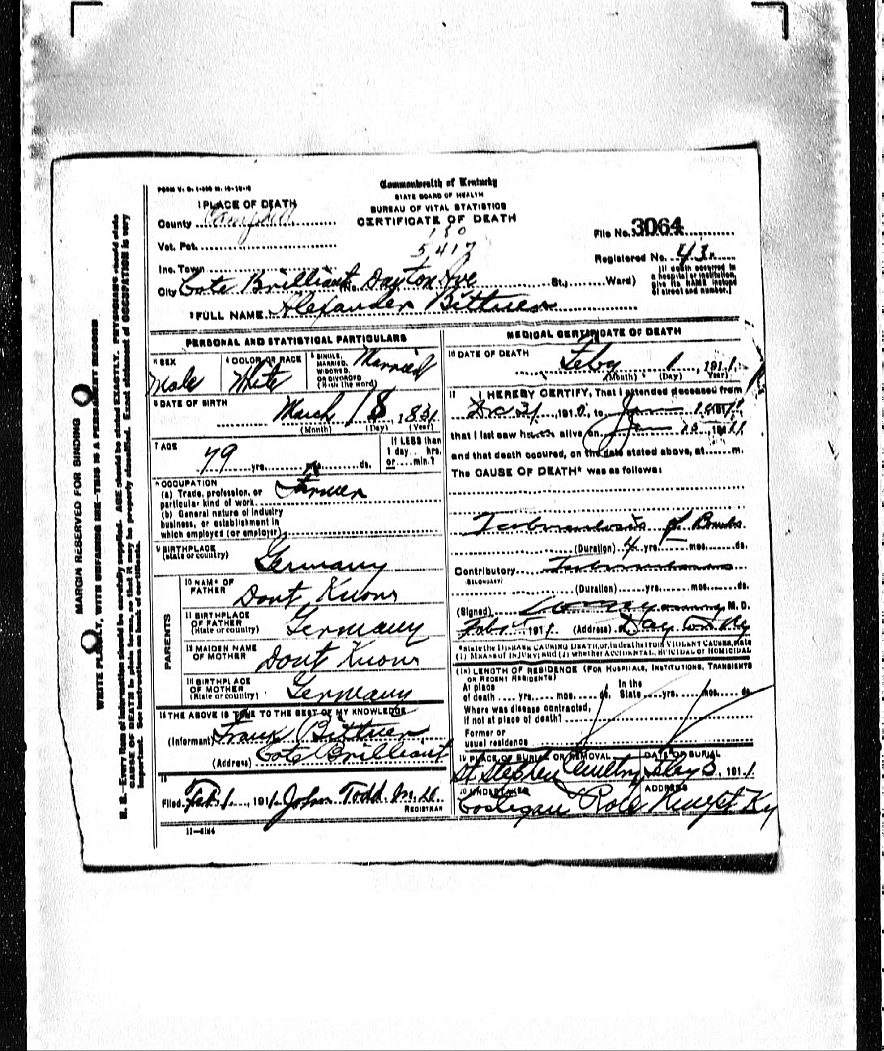 FORM V. S. 1-
Commonwealth of Kentucky
STATE BOARD OF HEALTH
BUREAU OF VITAL STATISTICS
CERTIFICATE OF DEATH
1 PLACE OF DEATH
County Campbell
130
Vot. Pct.
5417
File No. 3064
Registered No.
Inc. Town
City Cote Brilliant Dayton Ave St.; Ward)
(If death occurred in
a hospital or institution,
give its NAME instead
of street and number.)
FULL NAME Alexander Bittner
PERSONAL AND STATISTICAL PARTICULARS
SEX
Male
4 COLOR OR RACE
White
SINGLE,
MARRIED,
WIDOWED,
OR DIVORCED
(Write the word)
Married
6 DATE OF BIRTH
March 18, 1831
(Month) (Day) (Year)
7 AGE
79 yrs. mos. ds.
If LESS than
1 day.. hrs.
or min.?
OCCUPATION
(a) Trade, profession, or
particular kind of work Farmer
(b) General nature of industry
business, or establishment in
which employed (or employer)
9 BIRTHPLACE
(state or country)
Germany
PARENTS
10 NAME OF
FATHER
Dont Know
11 BIRTHPLACE
OF FATHER
(State or country)
Germany
12 MAIDEN NAME
OF MOTHER
Dont Know
BIRTHPLACE
OF MOTHER
(State or country)
Germany
THE ABOVE IS TRUE TO THE BEST OF MY KNOWLEDGE
(Informant) Frank Bittner
(Address) Cote Brilliant
Filed Feb 1, 1911 John Todd M.D.
REGISTRAR
MEDICAL CERTIFICATE OF DEATH
DATE OF DEATH
Feby 1, 1911
(Month) (Day) (Year)
I HEREBY CERTIFY, That I attended deceased from
Dec 31, 1910, to Jan
that I last saw alive on Jan 1911
and that death occured, on the date stated above, at m.
The CAUSE OF DEATH* was as follows:
Tuberculosis of
(Duration) 4 yrs. mos. ds.
Contributory
(SECONDARY)
(Duration) yrs. mos. ds.
(Signed) M. D.
Feb 1911 (Address) Dayton Ky
*State the DISEASE CAUSING DEATH, or, in deaths from VIOLENT CAUSES, state
(1) MEANS OF INJURY; and (2) whether ACCIDENTAL, SUICIDAL or HOMICIDAL
LENGTH OF RESIDENCE (FOR HOSPITALS, INSTITUTIONS, TRANSIENTS
OR RECENT RESIDENTS)
At place
of death yrs. mos. ds.
In the
State yrs. mos. ds
Where was disease contracted,
if not at place of death?
Former or
usual residence
PLACE OF BURIAL OR REMOVAL
St Stephen
DATE OF BURIAL
3, 1911
20 UNDERTAKER
Costigan
ADDRESS
Newpt Ky
MARGIN RESERVED FOR BINDING
WRITE PLAINLY, WITH UNFADING INK—THIS IS A PERMANENT RECORD
N. B.—Every item of information should be carefully supplied. AGE should be stated EXACTLY. PHYSICIANS should state
CAUSE OF DEATH in plain terms, so that it may be properly classified. Exact statement of OCCUPATION is very
important. See instructions on back of certificate.